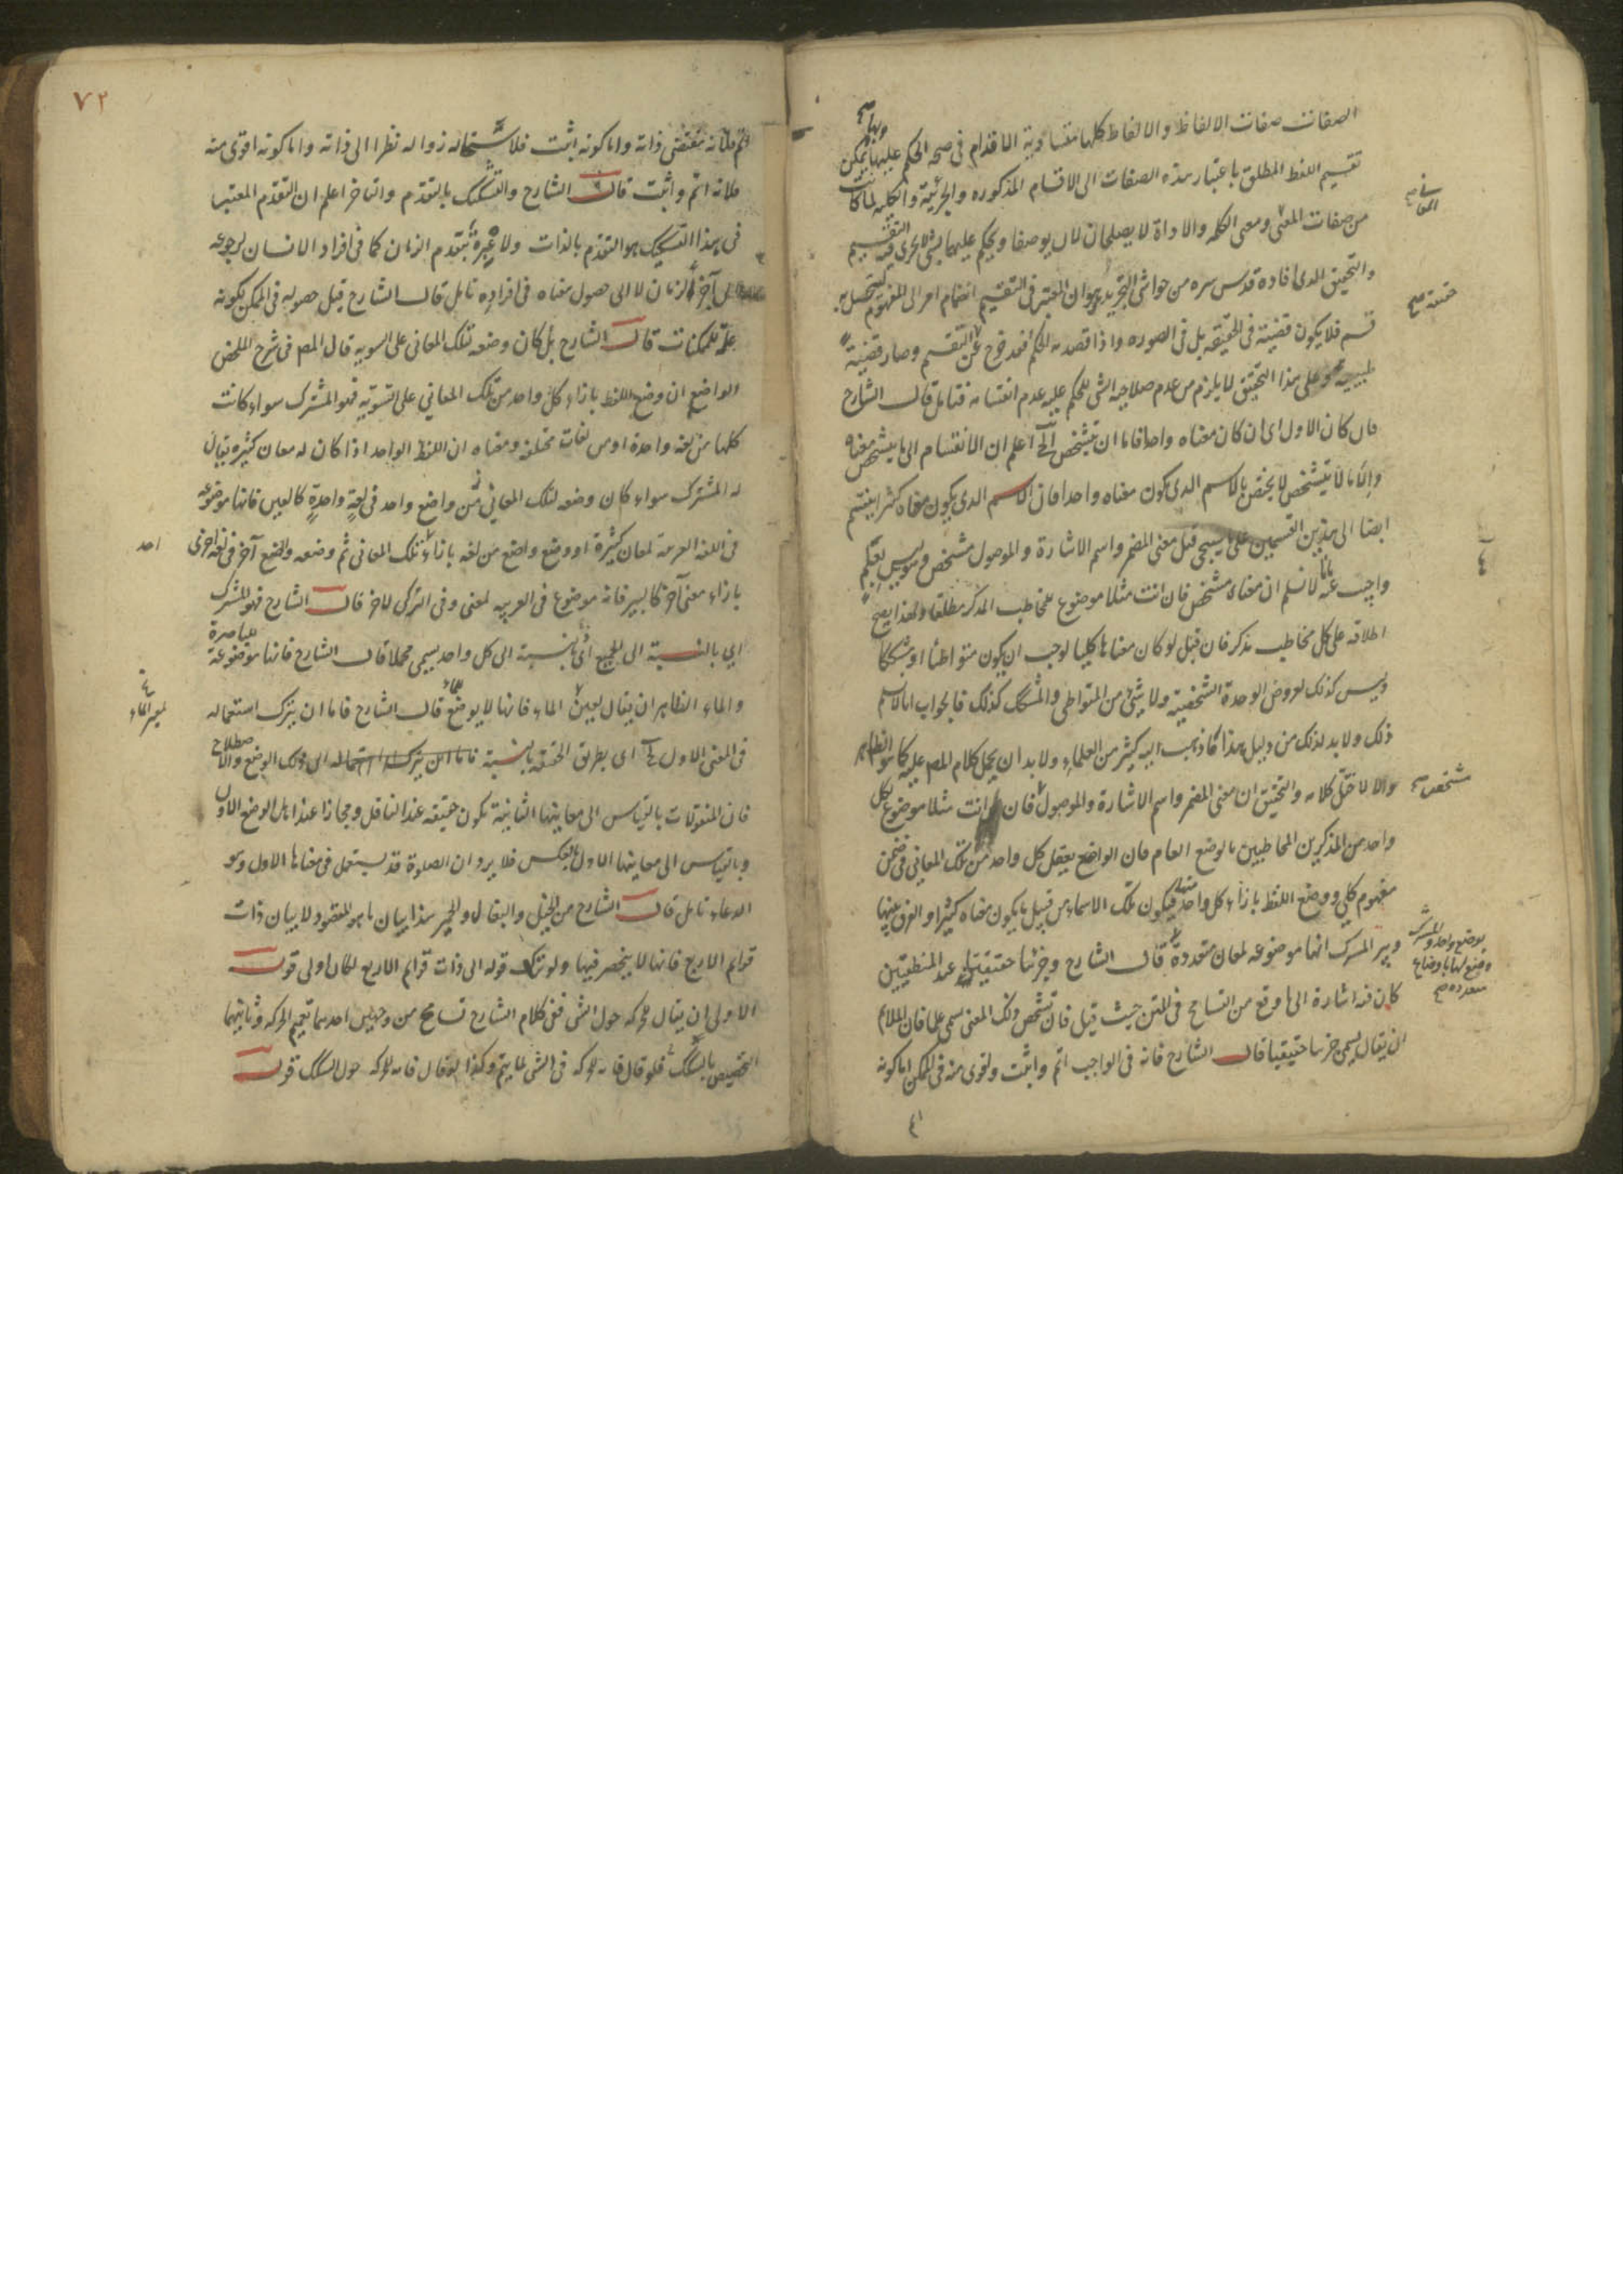 الصفات صفات الالفاظ والالفاظ كلها متساوية الاقدام فى صحة الحكم عليها وبها يمكن
تقسيم اللفظ المطلق باعتبار هذه الصفات الى الاقسام المذكورة والجزئية والكلية لما كانت
من صفات المعنى ومعنى الكلمة والاداة لا يصلحان لان يوصفا ويحكم عليهما بشئ لا يجرى فيه التقسيم
فى المعانى صح
والتحقيق الذى افاده قدس سره من حواشى التجريد هو ان المعتبر فى التقسيم انضمام امر الى المفهوم ليحصل به
قسم فلا يكون قضية فى الحقيقة بل فى الصورة واذا قصد به الحكم فقد خرج عن التقسيم وصار قضية
حقيقة صح
طبيعية وعلى هذا التحقيق لا يلزم من عدم صلاحية الشئ للحكم عليه عدم انقسامه فتامل قال الشارح
فان كان الاول اى ان كان معناه واحدا فاما ان يتشخص الخ اعلم ان الانقسام الى ما يتشخص معناه
والى ما لا يتشخص لا يختص بالاسم الذى يكون معناه واحدا فان الاسم الذى يكون معناه كثيرا ينقسم
ايضا الى هذين القسمين على ما سيجى قيل معنى المضمر واسم الاشارة والموصول مشخص وليس بعلم
واجيب عنه بانا لا نسلم ان معناه مشخص فان انت مثلا موضوع للمخاطب المذكر مطلقا ولهذا يصح
اطلاقه على كل مخاطب مذكر فان قيل لو كان معناها كليا لوجب ان يكون متواطئا او مشككا
وليس كذلك لعروض الوحدة الشخصية ولا شئ من المتواطى والمشكك كذلك فالجواب انا لا نسلم
ذلك ولا بد لذلك من دليل هذا ما ذهب اليه كثير من العلماء ولا بد ان يحمل كلام المص عليه كما هو الظاهر
والا لاختل كلامه والتحقيق ان معنى المضمر واسم الاشارة والموصول مشخص فان انت مثلا موضوع لكل
واحد من المذكرين المخاطبين بالوضع العام فان الواضع يعقل كل واحد من تلك المعانى فى ضمن
مفهوم كلى ووضع اللفظ بازاء كل واحد منها فيكون تلك الاسماء من قبيل ما يكون معناه كثيرا والفرق بينها
وبين المشترك انها موضوعة لمعان متعددة قال الشارح وجزئيا حقيقيا عند المنطقيين
بوضع واحد والمشترك
وضع لها باوضاع
متعددة صح
كان فيه اشارة الى ما وقع من التسامح فى المتن حيث قيل فان تشخص ذلك المعنى سمى علما فان الملائم
ان يقال يسمى جزئيا حقيقيا قال الشارح فانه فى الواجب اتم واثبت واقوى منه فى الممكن اما كونه
٧٢
اتم فلانه مقتضى ذاته واما كونه اثبت فلاستحالة زواله نظرا الى ذاته واما كونه اقوى منه
فلانه اتم واثبت قال الشارح والتشكيك بالتقدم والتاخر اعلم ان التقدم المعتبر
فى هذا التشكيك هو التقدم بالذات ولا عبرة بتقدم الزمان كما فى افراد الانسان لرجوعه
الى آخر الزمان لا الى حصول معناه فى افراده تامل قال الشارح قبل حصوله فى الممكن لكونه
علة للممكنات قال الشارح بل كان وضعه لتلك المعانى على السوية قال المص فى شرح الملخص
الواضع ان وضع اللفظ بازاء كل واحد من تلك المعانى على التسوية فهو المشترك سواء كانت
كلها من لغة واحدة او من لغات مختلفة ومعناه ان اللفظ الواحد اذا كان له معان كثيرة يقال
له المشترك سواء كان وضعه لتلك المعانى من واضع واحد فى لغة واحدة كالعين فانها موضوعة
فى اللغة العربية لمعان كثيرة او وضع واضع من لغة بازاء تلك المعانى ثم وضعه واضع آخر فى لغة اخرى
احد
بازاء معنى آخر كالبير فانه موضوع فى العربية لمعنى وفى التركى لآخر قال الشارح فهو المشترك
اى بالنسبة الى الجميع اى بالنسبة الى كل واحد يسمى مجملا قال الشارح فانها موضوعة للباصرة
والماء الظاهر ان يقال لعين الماء فانها لا يوضع للماء قال الشارح فاما ان يترك استعماله
فى المعنى الاول الخ اى بطريق الحقيقة بالنسبة الى ذلك الوضع والاصطلاح
فان المنقولات بالقياس الى معانيها الثانية تكون حقيقة عند الناقل ومجازا عند اهل الوضع الاول
وبالقياس الى معانيها الاول بالعكس فلا يرد ان الصلوة قد يستعمل فى معناها الاول وهو
الدعاء تامل قال الشارح من الخيل والبغال والحمير هذا بيان ما هو المقصود لا بيان ذات
قوائم الاربع فانها لا ينحصر فيها ولو ترك قوله الى ذات قوائم الاربع لكان اولى قوله
الاولى ان يقال للحركة حول الشئ ففى كلام الشارح تسامح من وجهين احدهما تعميم الحركة وثانيهما
التخصيص بالسكك فلو قال فانه للحركة فى الشئ لما يتم وكذا لو قال فانه للحركة حول السكك قوله